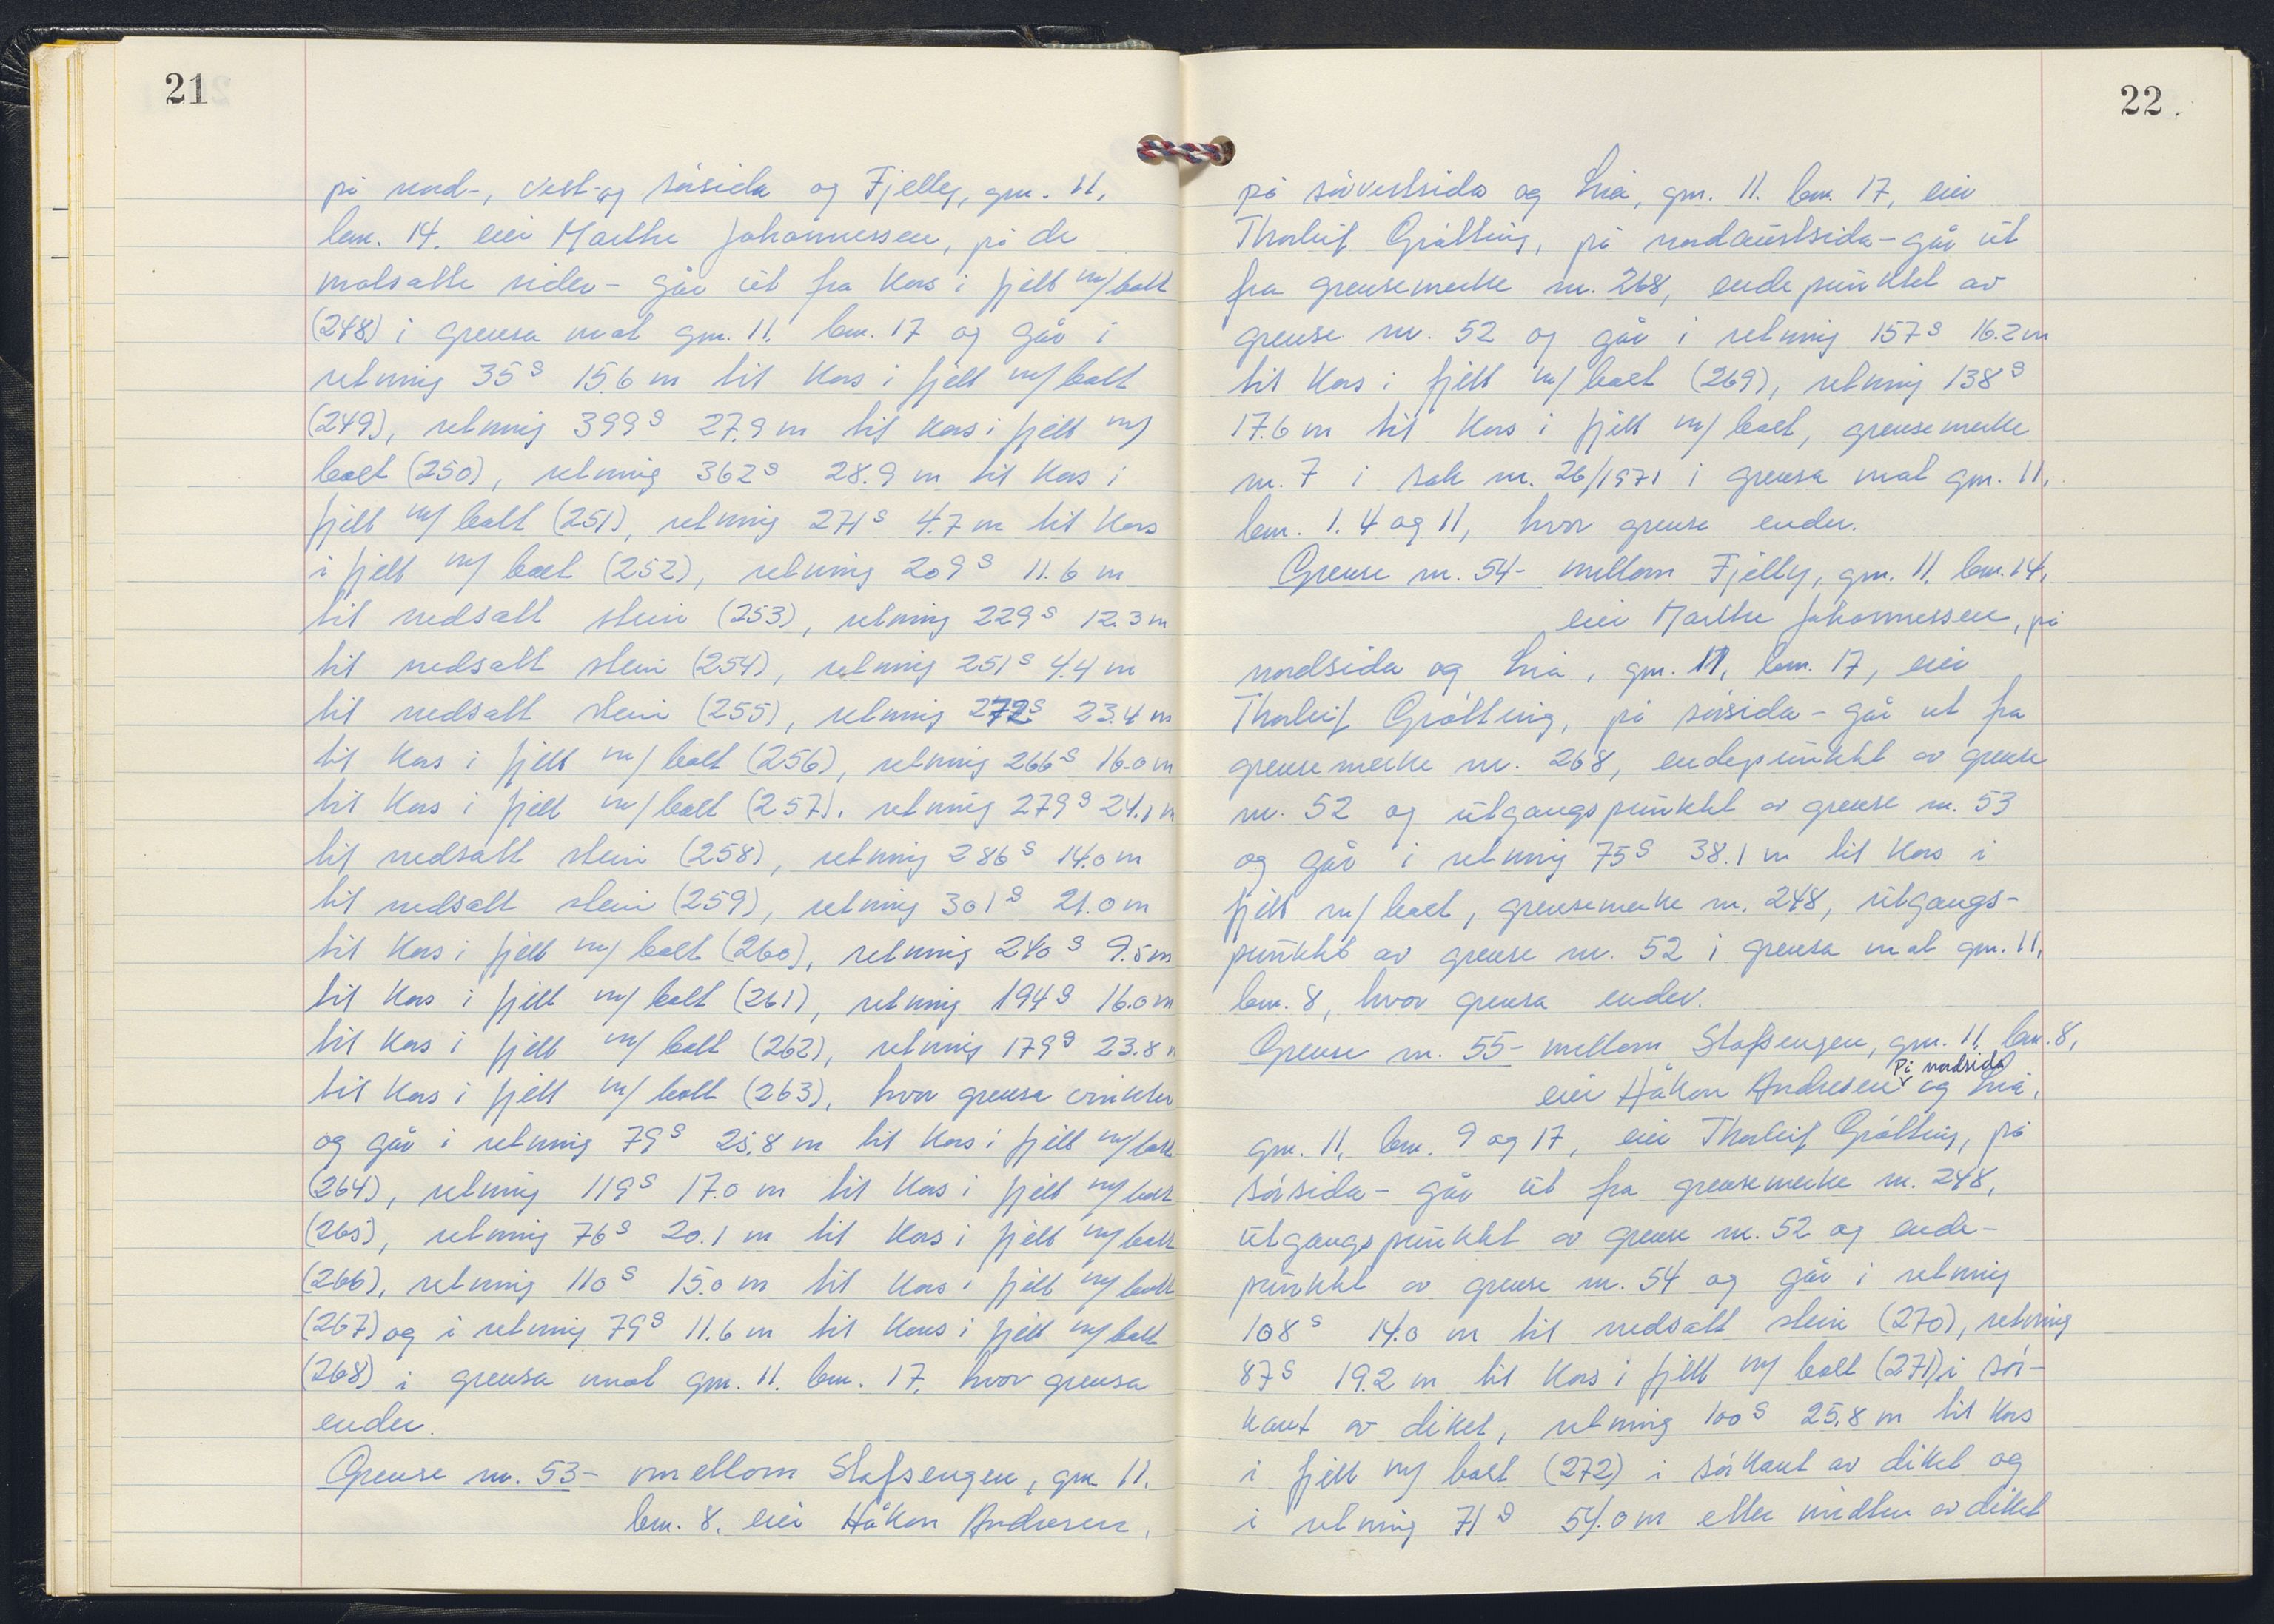 21
på nord-, vest- og sørsida og Fjelly, gnr. 11,
bnr. 14. eier Marthe Johannessen, på de
motsatte sider - går ut fra kors i fjell m/bolt
(248) i grensa mot gnr. 11. bnr. 17 og går i
retning 35g 15.6 m til kors i fjell m/bolt
(249), retning 399g 27.9 m til kors i fjell m/
bolt (250), retning 362g 28.9 m til kors i
fjell m/bolt (251), retning 271g 4.7 m til kors
i fjell m/ bolt (252), retning 209g 11.6 m
til nedsatt stein (253), retning 229g 12.3 m
til nedsatt stein (254), retning 251g 4.4 m
til nedsatt stein (255), retning 272g 23.4 m
til kors i fjell m/bolt (256), retning 266g 16.0 m
til kors i fjell m/bolt (257), retning 279g 24.1 m
til nedsatt stein (258), retning 286g 14.0 m
til nedsatt stein (259), retning 301g 21.0 m
til kors i fjell m/bolt (260), retning 240g 9.5 m
til kors i fjell m/bolt (261), retning 194g 16.0 m
til kors i fjell m/bolt (262), retning 179g 23.8 m
til kors i fjell m/bolt (263), hvor grensa vinkler
og går i retning 79g 25.8 m til kors i fjell m/bolt
(264), retning 119g 17.0 m til kors i fjell m/bolt
(265), retning 76g 20.1 m til kors i fjell m/bolt
(266), retning 110g 15.0 m til kors i fjell m/bolt
(267) og i retning 79g 11.6 m til kors i fjell m/bolt
(268) i grensa mot gnr. 11. bnr. 17. hvor grensa
ender.
Grense nr. 53 - mellom Stafsengen, gnr 11.
bnr. 8. eier Håkon Andresen,
22.
på sørvestsida og Lia, gnr. 11. bnr. 17, eier
Thorleif Grøtting, på nordaustsida - går ut
fra grensemerke nr. 268, endepunktet av
grense nr. 52 og går i retning 157g 16.2 m
til kors i fjell m/bolt (269), retning 138g
17.6 m til kors i fjell m/bolt, grensemerke
nr. 7 i sak nr. 26/1971 i grensa mot gnr. 11,
bnr. 1. 4 og 11, hvor grensa ender.
Grense nr. 54 - mellom Fjelly, gnr. 11, bnr. 14,
eier Marthe Johannessen, på
nordsida og Lia, gnr. 11, bnr. 17, eier
Thorleif Grøtting, på sørsida - går ut fra
grensemerke nr. 268, endepunktet av grense
nr. 52 og utgangspunktet av grense nr. 53
og går i retning 75g 38.1 m til kors i
fjell m/bolt, grensemerke nr. 248, utgangs-
punktet av grense nr. 52 i grensa mot gnr. 11,
bnr. 8, hvor grensa ender.
Grense nr. 55 - mellom Stafsengen, gnr. 11, bnr. 8,
eier Håkon Andresen på nordsida og Lia,
gnr. 11, bnr. 9 og 17, eier Thorleif Grøtting, på
sørsida - går ut fra grensemerke nr. 248,
utgangspunktet av grense nr. 52 og ende-
punktet av grense nr. 54 og går i retning
108g 14.0 m til nedsatt stein (270), retning
87g 19.2 m til kors i fjell m/bolt (271) i sør-
kant av diket, retning 100g 25.8 m til kors
i fjell m/bolt (272) i sørkant av diket og
i retning 71g 54.0 m etter midten av diket